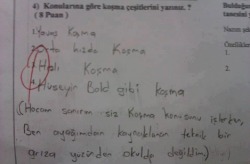 4) Konularına göre koşma çeşitlerini yazınız. ?
( 8 Puan )
1. Yavaş Koşma
2. Orta hızda Koşma
3. Hızlı Koşma
4. Hüseyin Bold gibi koşma
(Hocam sanırım siz Koşma konusunu işlerken,
Ben ayağımdan kaynaklanan teknik bir
arıza yüzünden okulda değildim)
Bulduğu
1.
2.